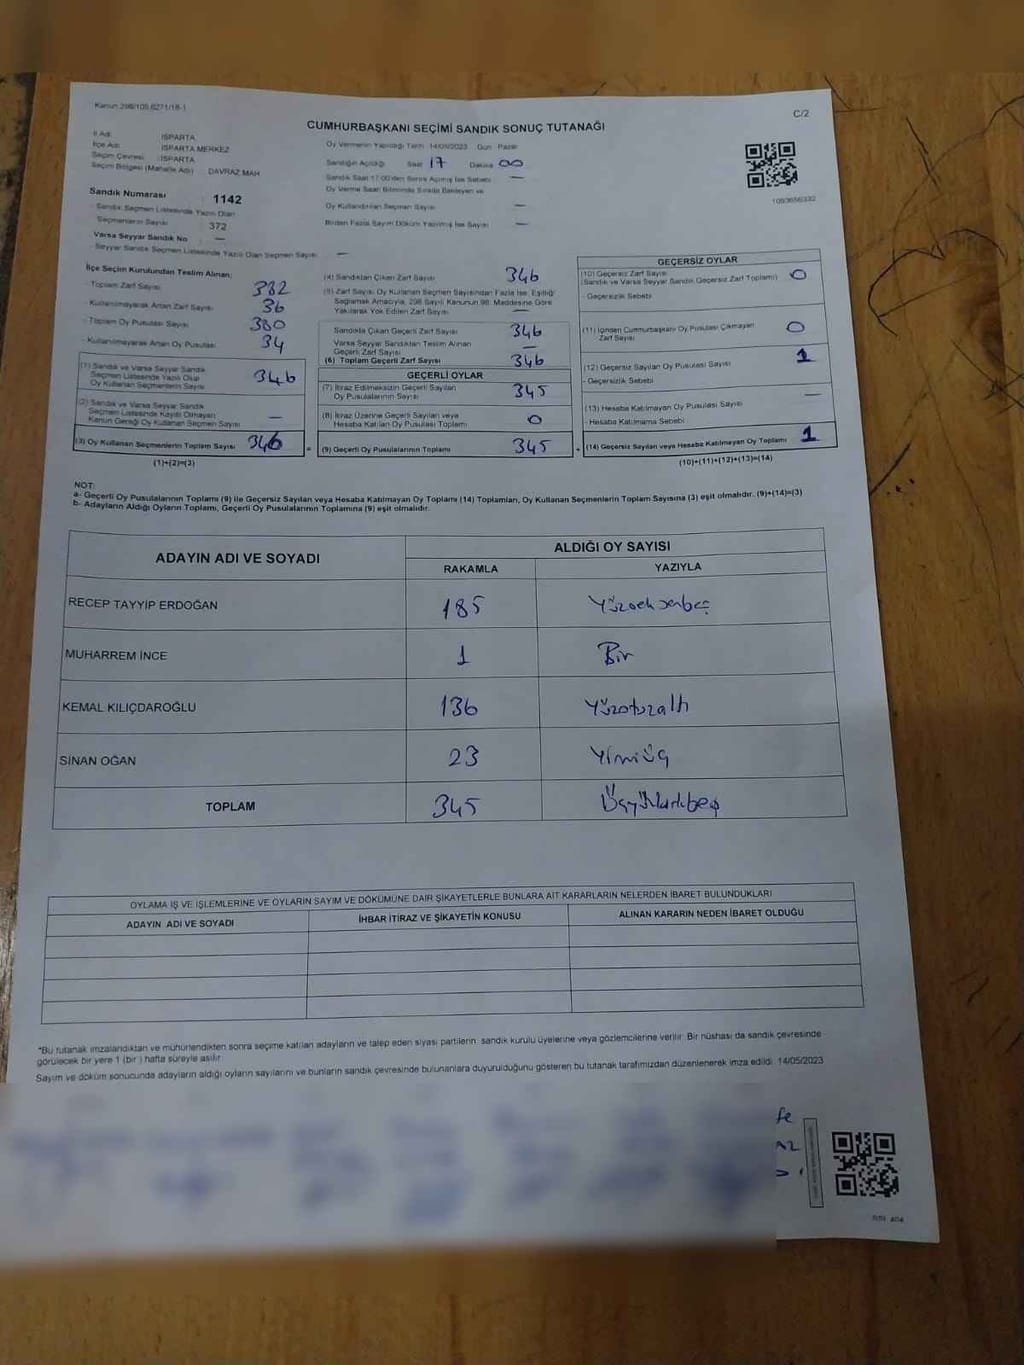 Kanun 298/105,6271/18-1
C/2
CUMHURBAŞKANI SEÇİMİ SANDIK SONUÇ TUTANAĞI
İl Adı : ISPARTA
İlçe Adı : ISPARTA MERKEZ
Seçim Çevresi : ISPARTA
Seçim Bölgesi (Mahalle Adı) DAVRAZ MAH
Sandık Numarası 1142
- Sandık Seçmen Listesinde Yazılı Olan
Seçmenlerin Sayısı 372
Varsa Seyyar Sandık No —
- Seyyar Sandık Seçmen Listesinde Yazılı Olan Seçmen Sayısı —
Oy Vermenin Yapıldığı Tarih 14/05/2023 Gün Pazar
Sandığın Açıldığı Saat 17 Dakika 00
Sandık Saat 17:00'den Sonra Açılmış İse Sebebi —
Oy Verme Saati Bitiminde Sırada Bekleyen ve
Oy Kullandırılan Seçmen Sayısı —
Birden Fazla Sayım Döküm Yapılmış İse Sayısı —
1093656332
İlçe Seçim Kurulundan Teslim Alınan;
- Toplam Zarf Sayısı 382
- Kullanılmayarak Artan Zarf Sayısı 36
- Toplam Oy Pusulası Sayısı 380
- Kullanılmayarak Artan Oy Pusulası 34
(1) Sandık ve Varsa Seyyar Sandık
Seçmen Listesinde Yazılı Olup
Oy Kullanan Seçmenlerin Sayısı 346
(2) Sandık ve Varsa Seyyar Sandık
Seçmen Listesinde Kayıtlı Olmayan
Kanun Gereği Oy Kullanan Seçmen Sayısı —
(3) Oy Kullanan Seçmenlerin Toplam Sayısı 346
(1)+(2)=(3)
(4) Sandıktan Çıkan Zarf Sayısı 346
(5) Zarf Sayısı, Oy Kullanan Seçmen Sayısından Fazla İse, Eşitliği
Sağlamak Amacıyla, 298 Sayılı Kanunun 98. Maddesine Göre
Yakılarak Yok Edilen Zarf Sayısı —
Sandıkta Çıkan Geçerli Zarf Sayısı 346
Varsa Seyyar Sandıktan Teslim Alınan
Geçerli Zarf Sayısı —
(6) Toplam Geçerli Zarf Sayısı 346
GEÇERLİ OYLAR
(7) İtiraz Edilmeksizin Geçerli Sayılan
Oy Pusulalarının Sayısı 345
(8) İtiraz Üzerine Geçerli Sayılan veya
Hesaba Katılan Oy Pusulası Toplamı 0
= (9) Geçerli Oy Pusulalarının Toplamı 345
GEÇERSİZ OYLAR
(10) Geçersiz Zarf Sayısı
(Sandık ve Varsa Seyyar Sandık Geçersiz Zarf Toplamı) 0
- Geçersizlik Sebebi
(11) İçinden Cumhurbaşkanı Oy Pusulası Çıkmayan
Zarf Sayısı 0
(12) Geçersiz Sayılan Oy Pusulası Sayısı 1
- Geçersizlik Sebebi
(13) Hesaba Katılmayan Oy Pusulası Sayısı —
- Hesaba Katılmama Sebebi
+ (14) Geçersiz Sayılan veya Hesaba Katılmayan Oy Toplamı 1
(10)+(11)+(12)+(13)=(14)
NOT:
a- Geçerli Oy Pusulalarının Toplamı (9) ile Geçersiz Sayılan veya Hesaba Katılmayan Oy Toplamı (14) Toplamları, Oy Kullanan Seçmenlerin Toplam Sayısına (3) eşit olmalıdır. (9)+(14)=(3)
b- Adayların Aldığı Oyların Toplamı, Geçerli Oy Pusulalarının Toplamına (9) eşit olmalıdır.
ADAYIN ADI VE SOYADI
ALDIĞI OY SAYISI
RAKAMLA YAZIYLA
RECEP TAYYİP ERDOĞAN 185 Yüzseksenbeş
MUHARREM İNCE 1 Bir
KEMAL KILIÇDAROĞLU 136 Yüzotuzaltı
SİNAN OĞAN 23 Yirmiüç
TOPLAM 345 Üçyüzkırkbeş
OYLAMA İŞ VE İŞLEMLERİNE VE OYLARIN SAYIM VE DÖKÜMÜNE DAİR ŞİKAYETLERLE BUNLARA AİT KARARLARIN NELERDEN İBARET BULUNDUKLARI
ADAYIN ADI VE SOYADI İHBAR İTİRAZ VE ŞİKAYETİN KONUSU ALINAN KARARIN NEDEN İBARET OLDUĞU
*Bu tutanak imzalandıktan ve mühürlendikten sonra seçime katılan adayların ve talep eden siyasi partilerin sandık kurulu üyelerine veya gözlemcilerine verilir. Bir nüshası da sandık çevresinde
görülecek bir yere 1 (bir ) hafta süreyle asılır.
Sayım ve döküm sonucunda adayların aldığı oyların sayılarını ve bunların sandık çevresinde bulunanlara duyurulduğunu gösteren bu tutanak tarafımızdan düzenlenerek imza edildi. 14/05/2023